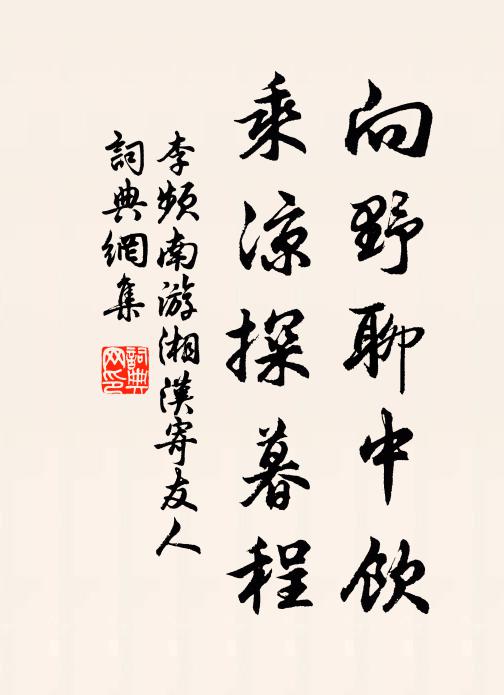 向野聊中飲
乘涼探暮程
李頻南游湘漢寄友人
詞典網集
詞典
网印